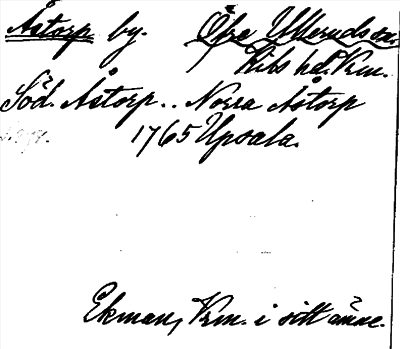 Åstorp by. Övre Ulleruds sn.
Kils hd. Vrm.
Söd. Åstorp.. Norra Åstorp
1765 Upsala.
Ekman, Vrm. i sitt ämne.